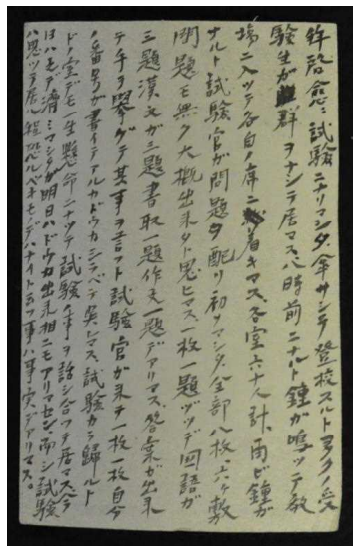 拝啓愈々試験ニナリマシタ。傘サシテ登校スルト多クノ受
験生ガ群ヲナシテ居マス。八時前ニナルト鐘ガ鳴ッテ教
場ニ入ッテ各自ノ席ニ着キマス各室六十人計、再ビ鐘ガ
ナルト試験官ガ問題ヲ配リ初メマシタ。全部八枚、六ヶ敷
問題モ無ク大概出来タト思ヒマス一枚一題ヅツデ国語ガ
三題漢文ガ三題書取一題作文一題デアリマス。答案ガ出来
テ手ヲ挙ゲテ其事ヲ言フト試験官ガ来テ一枚一枚自分
ノ番号ガ書イテアルカドウカシラベテ呉レマス。試験カラ歸ルト
ドノ室デモ一生懸命ニナッテ試験ノ事ヲ話シ合ッテ居マス。今
日ハモウ済ミマシタガ明日ハドウカ出来相ニモアリマセン。而シ試験
ハ思ッテ居ル程恐ルベキモノデハナイト云フ事ハ事実デアリマス。